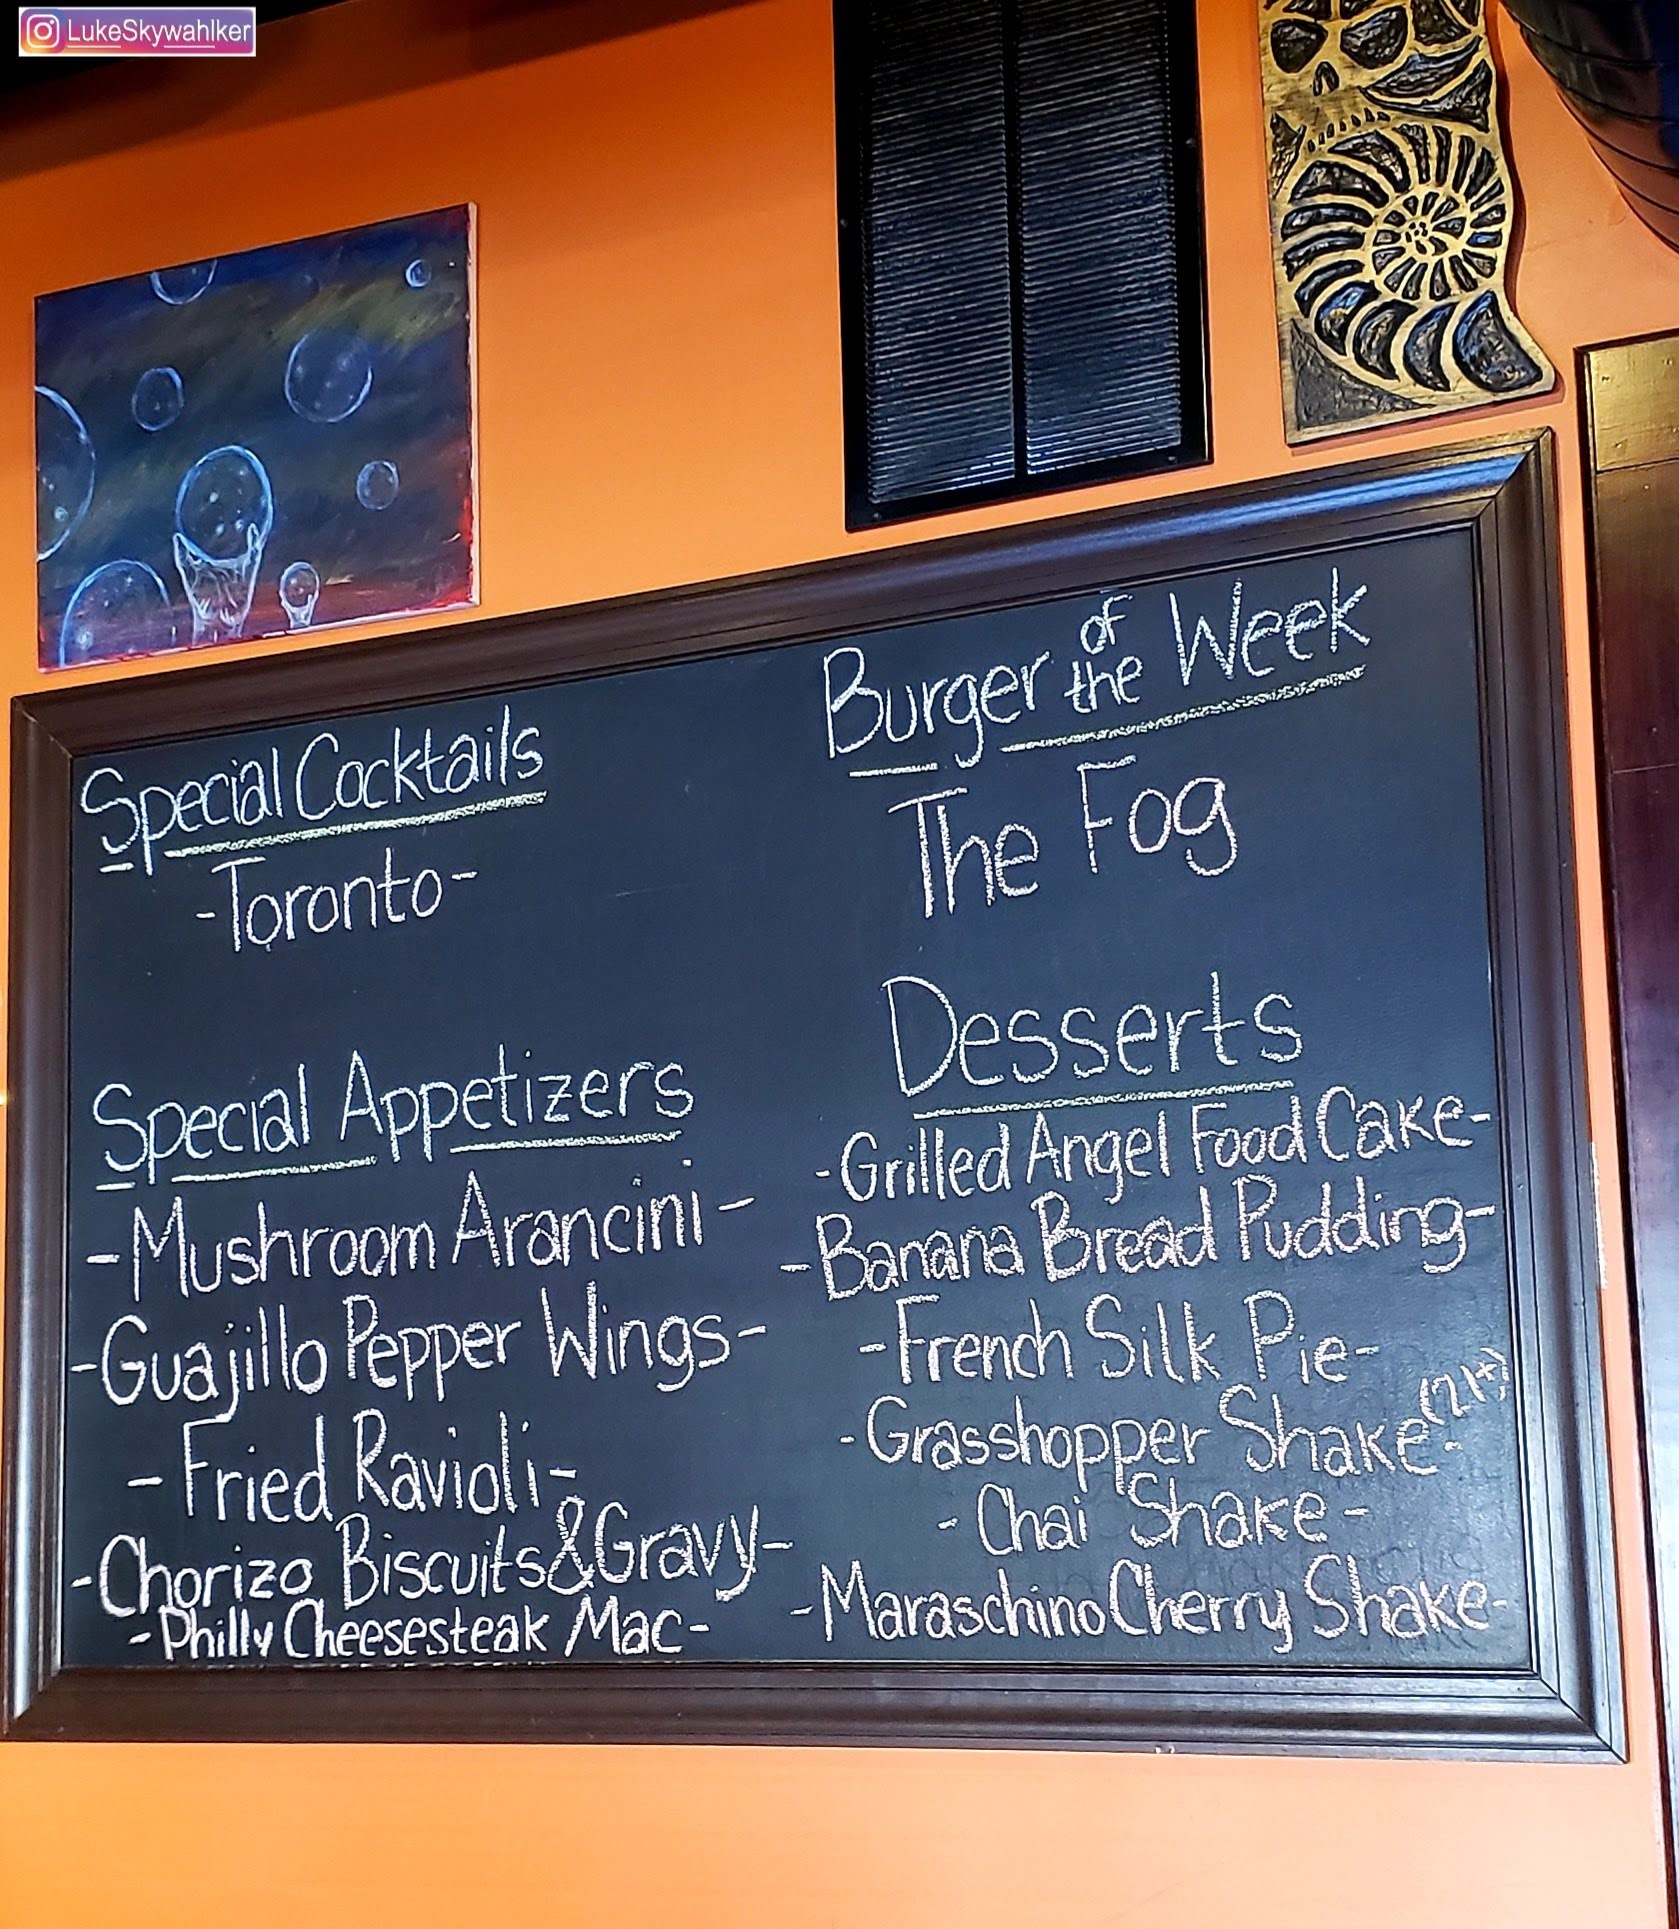 LukeSkywahlker
Special Cocktails
-Toronto-
Special Appetizers
-Mushroom Arancini-
-Guajillo Pepper Wings-
-Fried Ravioli-
-Chorizo Biscuits & Gravy-
-Philly Cheesesteak Mac-
Burger of the Week
The Fog
Desserts
-Grilled Angel Food Cake-
-Banana Bread Pudding-
-French Silk Pie-
-Grasshopper Shake- (21+)
-Chai Shake-
-Maraschino Cherry Shake-